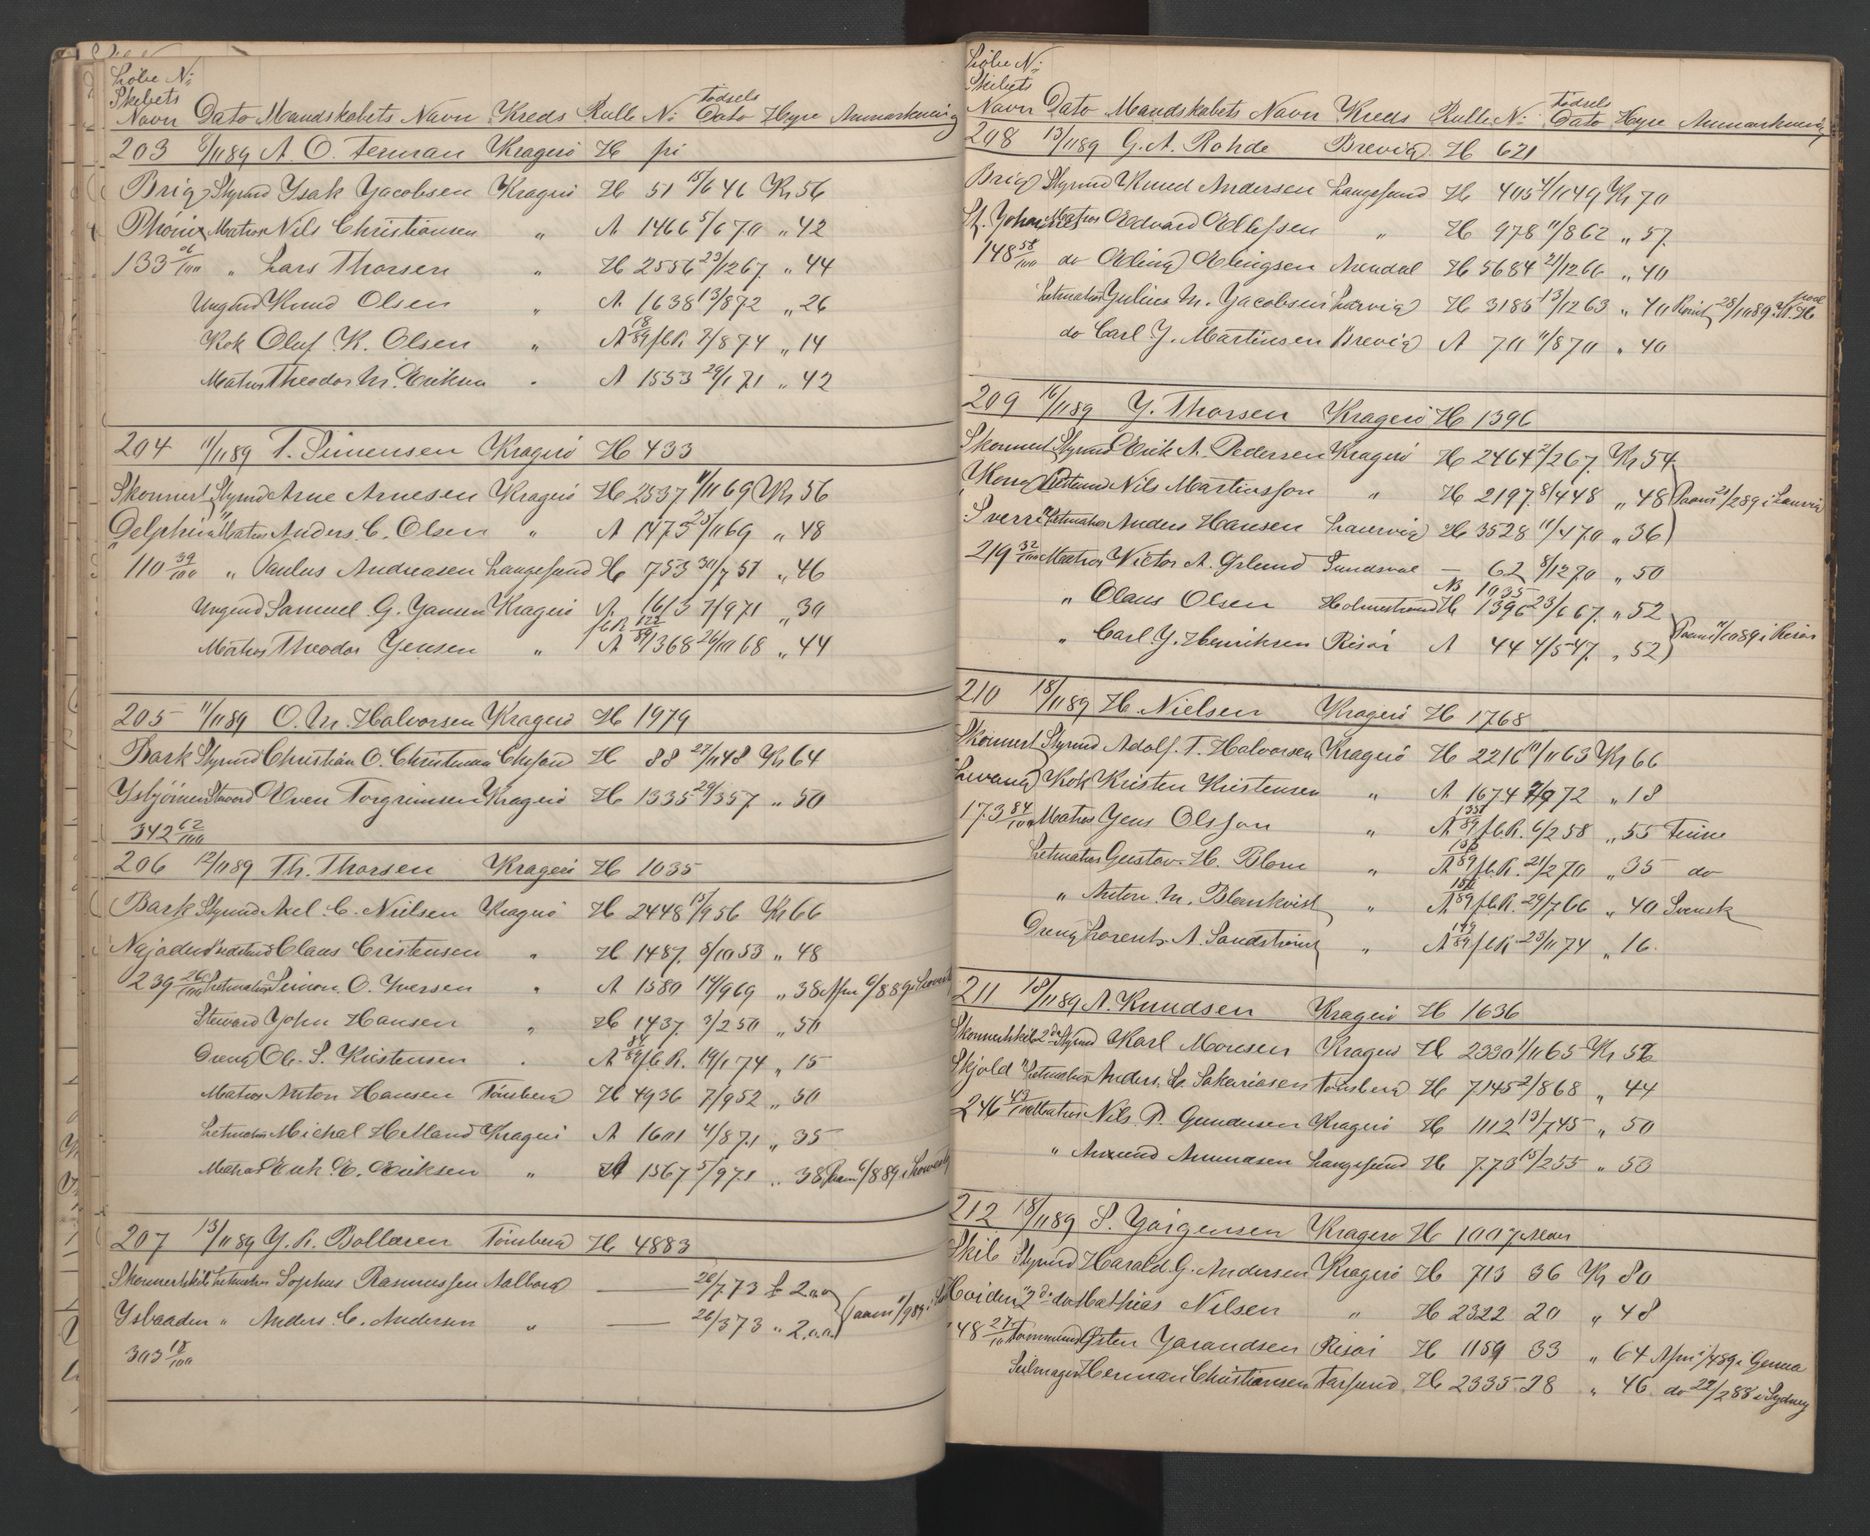 Løbe N:
Skibets
Navn Dato Mandskabets Navn Kreds Rulle N: Fødsels Dato Hyre Anmærkning
203 6/11 89 A. O. Terman Kragerø H fri
Brig Styrmd Ysak Jacobsen Kragerø H 51 15/6 46 Kr 56
Phønix Matros Nils Christiansen " A 1466 5/6 70 " 42
133 " Lars Thorsen " H 2556 23/12 67 " 44
Ungmd Knud Olsen " A 1638 13/8 72 " 26
Kok Oluf K. Olsen " A 78/89 fl R. 2/8 74 " 14
Matros Theodor M. Eriksen " A 1553 29/1 71 " 42
204 11/11 89 T. Simensen Kragerø H 433
Skonnert Styrmd Arne Arnesen Kragerø H 2537 11/11 69 Kr 56
"Delphin" Matros Anders C. Olsen " A 1473 25/11 69 " 48
110 39/100 " Paulus Andreasen Langesund H 753 30/7 51 " 46
Ungmd Samuel G. Jansen Kragerø A 1613 7/9 71 " 30
Matros Theodor Jensen " A fl R 122/89 1368 26/10 68 " 44
205 11/11 89 O. M. Halvorsen Kragerø H 1979
Bark Styrmd Christian O. Christensen H 88 27/11 48 Kr 64
Ysbjörnen Stuard Even Torgrimsen Kragerø H 1335 29/3 57 " 50
342 62/100
206 12/11 89 Th. Thorsen Kragerø H 1035
Bark Styrmd Axel C. Nielsen Kragerø H 2448 15/9 56 Kr 66
Najaden Claus Cristensen " H 1487 8/10 53 " 48
239 26/100 Letmatros Simon O. Iversen " A 1580 14/9 69 " 38 Afm 6/8 89 i
Steward John Hansen " H 1437 3/2 50 " 50
Dreng Ol. S. Kristensen " A 84/89 fl R. 19/1 74 " 15
Matros Anton Hansen Tønsberg H 4936 7/9 52 " 50
Letmatros Michal Helland Kragerø A 1601 4/8 71 " 35
Matros Erik E. Eriksen " A 1567 5/9 71 " 38 6/8 89 i
207 13/11 89 J. R. Bollæren Tønsberg H 4883
Skonnertskib Letmatros Sophus Rasmussen Aalborg — 26/7 73 £ 2.0.0
Ysbaaden " Anders C. Andersen " — 26/3 73 " 2.0.0
303 18/100
Løbe N:
Skibets
Navn Dato Mandskabets Navn Kreds Rulle N: Fødsels Dato Hyre Anmærkning
208 13/11 89 G. A. Rohde Brevig H 621
Brig Styrmd Knud Andersen Langesund H 405 4/11 49 Kr 70
St. Johannes Matros Edvard Ellefsen " H 978 11/8 62 " 57
148 58/100 do Eling Elingsen Arendal H 5684 21/12 66 " 40
Letmatros Julius M. Jacobsen Larvig H 3186 13/12 63 " 40 Rømt 28/10 89
do Carl J. Martinsen Brevig A 70 11/8 70 " 40
209 16/11 89 J. Thorsen Kragerø H 1396
Skonnert Styrmd Erik A. Pedersen Kragerø H 2464 2/2 67 Kr 54
Kong Nils Martinsson " H 2197 8/4 48 " 48 Paam 21/2 89 i Laurvig
Sverre Letmatros Anders Hansen Laurvig H 3528 11/4 70 " 36
219 32/100 Matros Victor A. Øslund Sundsval — 62 8/12 70 " 50
" Olaus Olsen Holmestrand H N3 1035 1396 23/6 67 " 52
" Carl J. Henriksen Risør A 44 4/5 47 " 52 Paam 11/10 89 i Risør
210 18/11 89 H. Nielsen Kragerø H 1768
Skonnert Styrmd Adolf T. Halvorsen Kragerø H 2216 11/11 63 Kr 66
Levang Kok Kristen Kristensen " A 1674 7/9 72 " 18
173 84/100 Matros Jens Olsson " A 89 fl R. 6/2 58 " 55 Finne
Letmatros Gustav H. Blom " A 89 fl R. 21/2 70 " 35 do
" Anton M. Blankvist " A 89 fl R. 29/7 66 " 40 Svensk
Dreng Lorents A. Sandstrøm " A 149/89 fl R 23/11 74 " 16
211 18/11 89 A. Knudsen Kragerø H 1636
Skonnertskib 2den Styrmd Karl Monsen Kragerø H 2330 1/11 65 Kr 56
Skjold Letmatros Anders L. Sakariasen Tønsberg H 7145 2/8 68 " 44
246 43/100 Matros Nils P. Gundersen Kragerø H 1112 13/7 45 " 50
" Amund Amundsen Langesund H 773 15/2 55 " 50
212 18/11 89 S. Jørgensen Kragerø H 1007
Skib Styrmd Harald G. Andersen Kragerø H 713 36 Kr 80
Hoiden 2d do Mathias Nilsen " H 2322 20 " 48
48 27/100 Tømmermd Østen Jarandsen Risør H 1159 33 " 64 Afm 1/4 89 i Genua
Seilmager Herman Christiansen Farsund H 2335 28 " 46 do 22/2 88 i Sydney